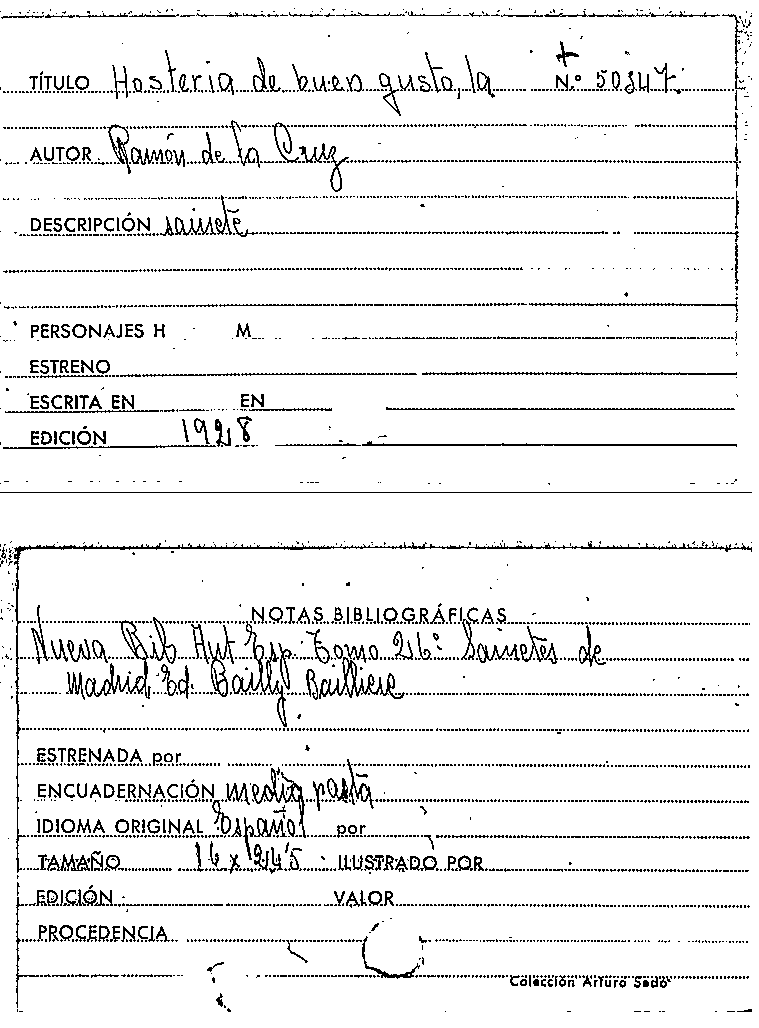 TÍTULO Hosteria de buen gusto, la + N.º 50347.
AUTOR Ramón de la Cruz
DESCRIPCIÓN sainete
PERSONAJES H M
ESTRENO
ESCRITA EN EN
EDICIÓN 1928
NOTAS BIBLIOGRÁFICAS
Nueva Bib Aut Esp. Tomo 26º Sainetes de
Madrid Ed. Bailly Bailliere
ESTRENADA por
ENCUADERNACIÓN media pasta
IDIOMA ORIGINAL Español por
TAMAÑO 16 x 24'5 ILUSTRADO POR
EDICIÓN VALOR
PROCEDENCIA
Colección Arturo Sedó